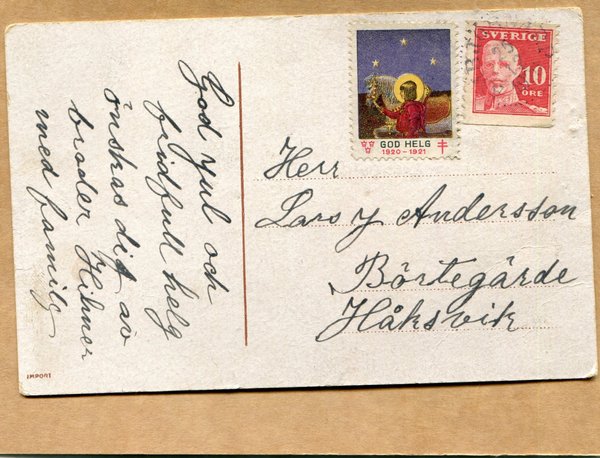 God jul och
fridfull helg
önskas dig av
broder Hilmer
med familj
IMPORT
GOD HELG
1920-1921
SVERIGE
10
ÖRE
Herr
Lars J Andersson
Börtegärde
Håksvik